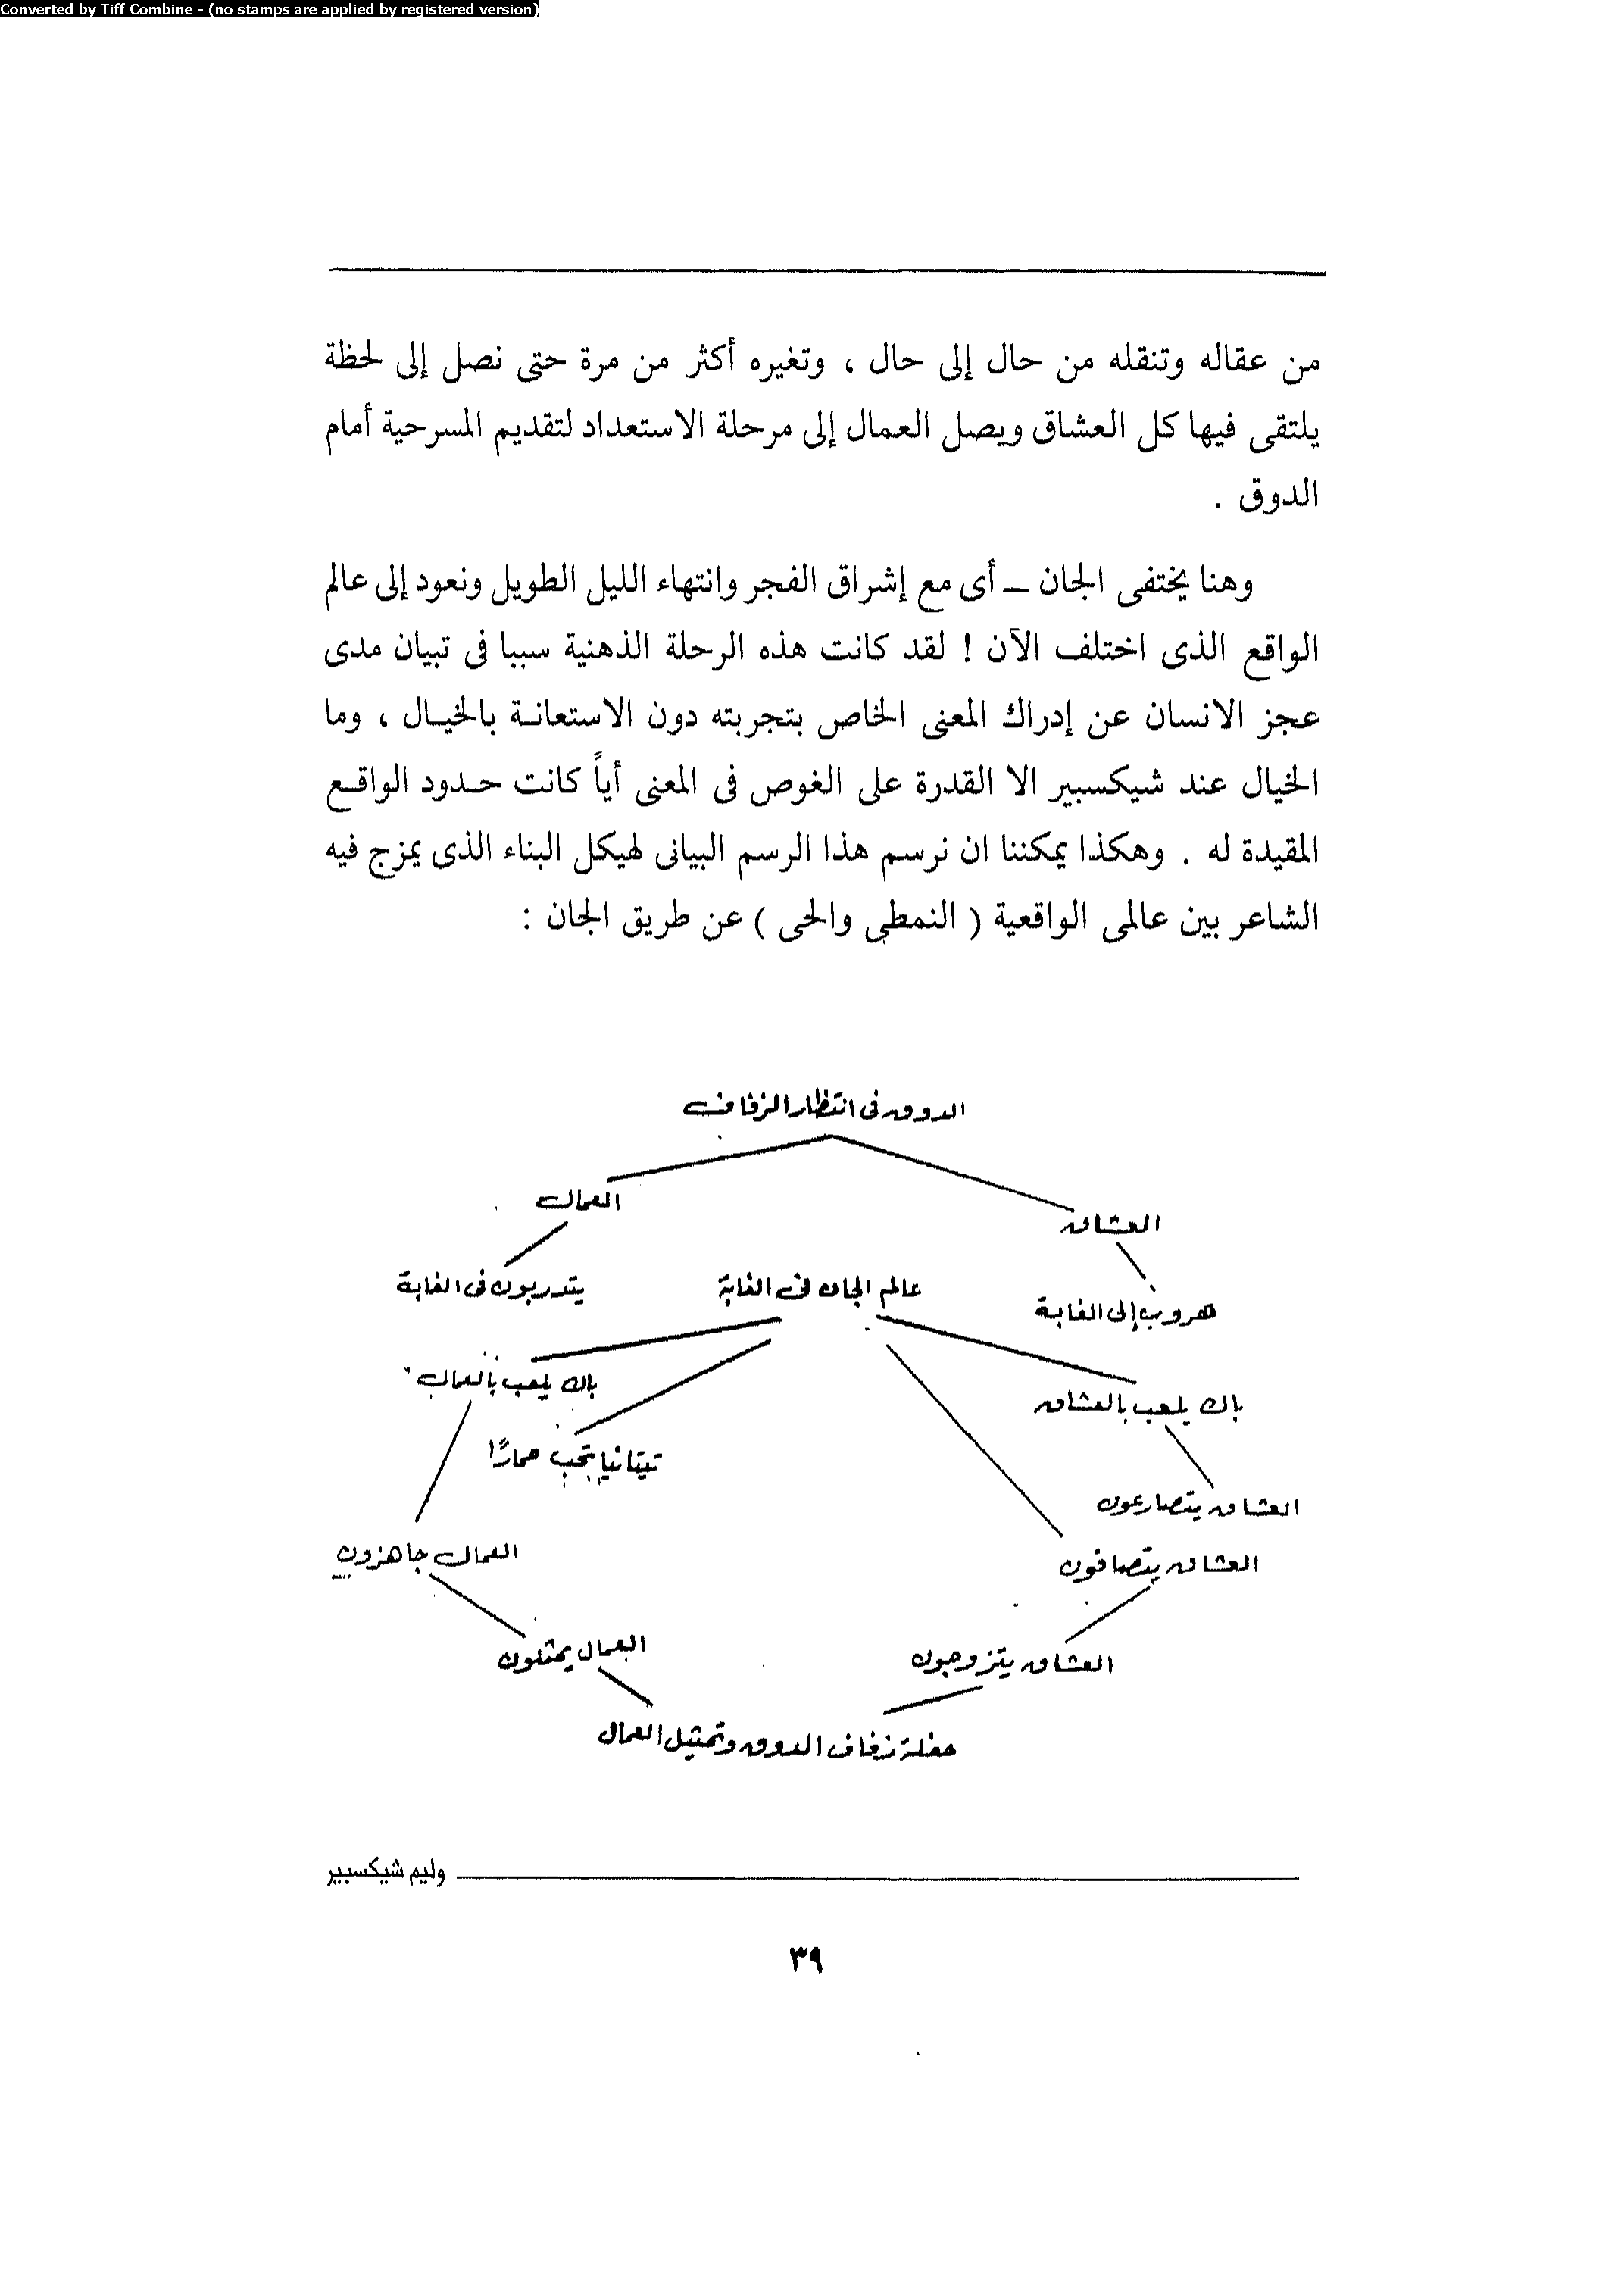 Converted by Tiff Combine - (no stamps are applied by registered version)
من عقاله وتنقله من حال إلى حال ، وتغيره أكثر من مرة حتى نصل إلى لحظة
يلتقى فيها كل العشاق ويصل العمال إلى مرحلة الاستعداد لتقديم المسرحية أمام
الدوق .
وهنا يختفى الجان ــ أى مع إشراق الفجر وانتهاء الليل الطويل ونعود إلى عالم
الواقع الذى اختلف الآن ! لقد كانت هذه الرحلة الذهنية سببا فى تبيان مدى
عجز الانسان عن إدراك المعنى الخاص بتجربته دون الاستعانة بالخيال ، وما
الخيال عند شيكسبير الا القدرة على الغوص فى المعنى أياً كانت حدود الواقع
المقيدة له . وهكذا يمكننا ان نرسم هذا الرسم البيانى لهيكل البناء الذى يمزج فيه
الشاعر بين عالمى الواقعية ( النمطى والحى ) عن طريق الجان :
الدوق فى انتظار الزفاف
العمال
العشاق
يتدربون فى الغابة
عالم الجان فى الغابة
هروب إلى الغابة
باك يلعب بالعمال
باك يلعب بالعشاق
تيتانيا تحب حمارًا
العشاق يتصارعون
العمال جاهزون
العشاق يتصافون
العمال يمثلون
العشاق يتزوجون
حفلة زفاف الدوق وتمثيل العمال
وليم شيكسبير
٣٩